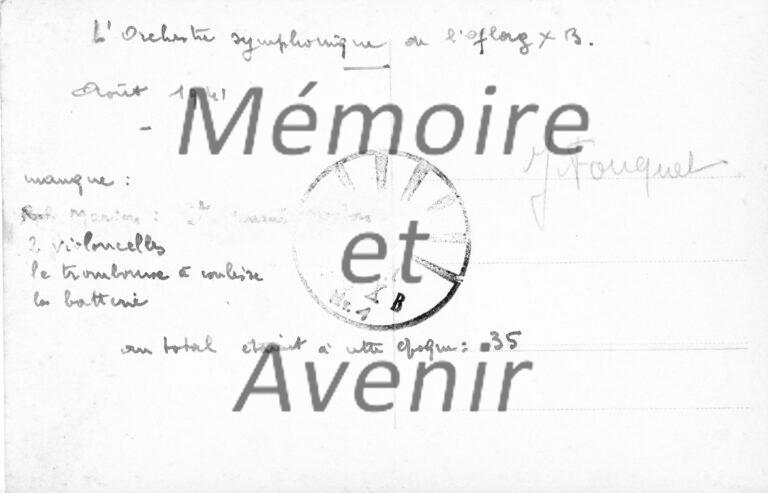 L'Orchestre symphonique de l'Oflag X B.
Août 1941
Mémoire
J Fouquet
manque :
2 violoncelles
et
le trombone à coulisse
Nr. 1
X B
la batterie
au total étaient à cette époque : 35
Avenir